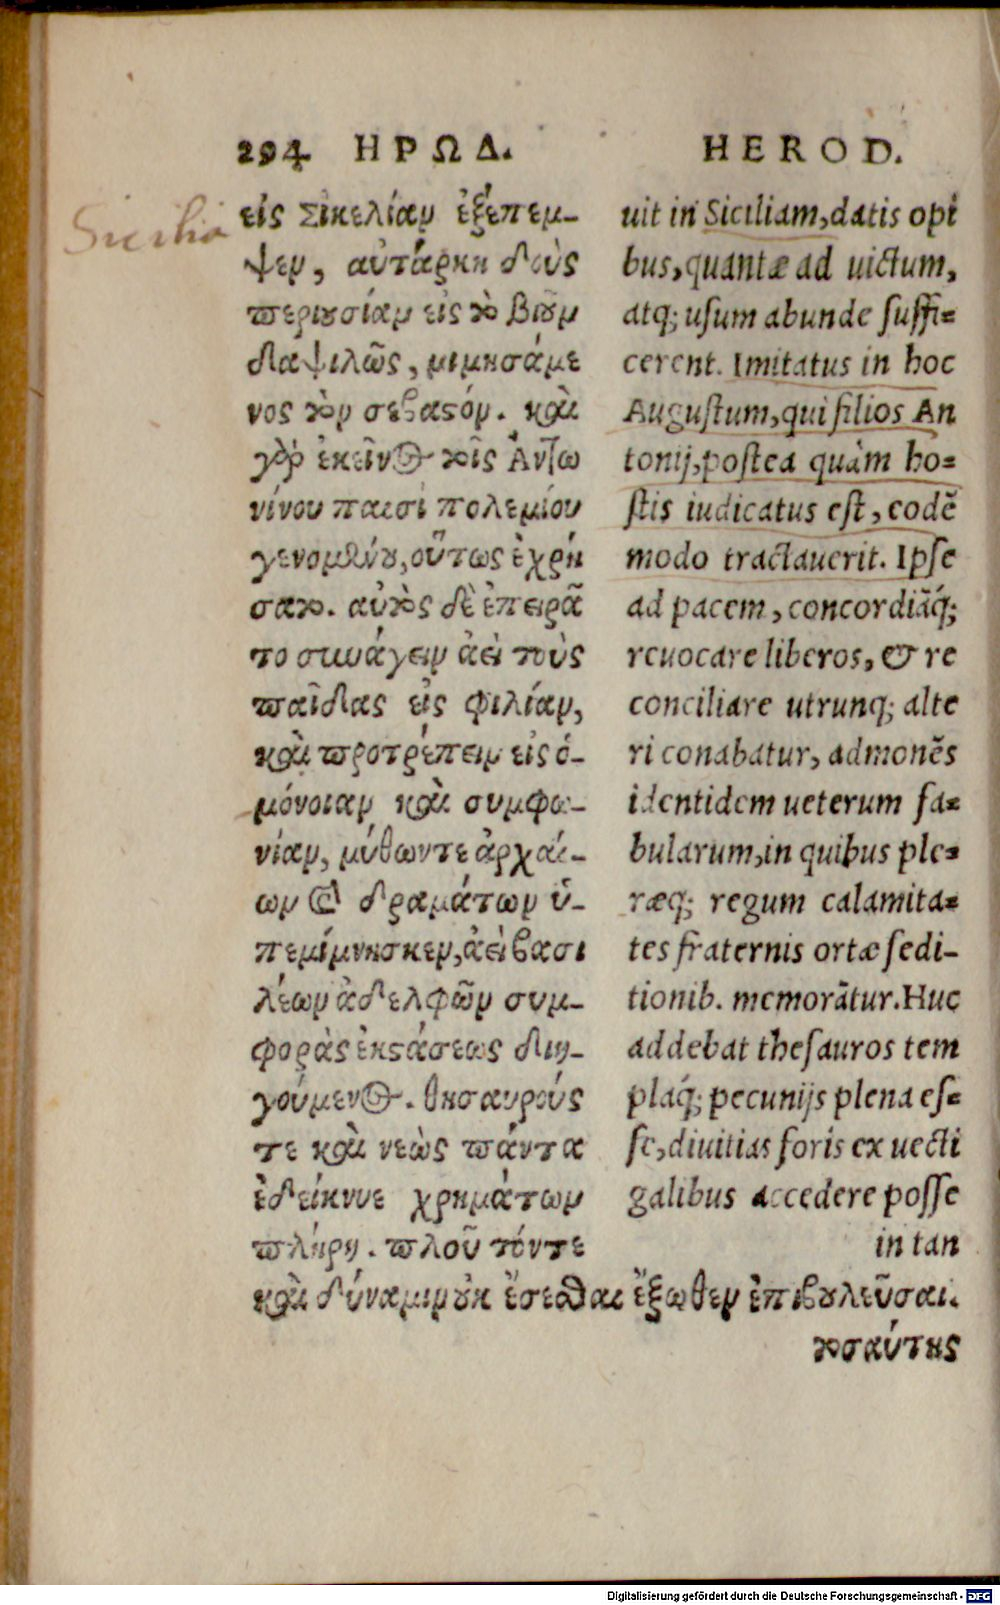 294 ΗΡΩΔ.
εἰς Σικελίαν ἐξέπεμ-
ψεν, αὐτάρκη δοὺς
περιουσίαν εἰς τὸ βίου
διαψιλῶς, μιμησάμε
νος τὸν σεβαστόν. καὶ
γὸ ἐκεῖνος τοῖς Ἀντω
νίνου παισὶ πολεμίου
γενομένου, οὕτως ἐχρή
σατο. αὐτὸς δὲ ἐπειρᾶ
το συνάγειν ἀεὶ τοὺς
παῖδας εἰς φιλίαν,
καὶ προτρέπειν εἰς ὁ-
μόνοιαν καὶ συμφω-
νίαν, μύθων τε ἀρχαί-
ων καὶ δραμάτων ὑ-
πεμίμνησκεν, ἀεὶ βασι
λέων ἀδελφῶν συμ-
φορὰς ἐκ στάσεως διη-
γούμενος. θησαυρούς
τε καὶ νεὼς πάντα
ἐδείκνυε χρημάτων
πλήρη. πλοῦ τόν τε
καὶ δύναμιν οὐκ ἔσεσθαι ἔξωθεν ἐπιβουλεῦσαι.
τοσαύτης
Sicilia
HEROD.
uit in Siciliam, datis opi
bus, quantæ ad uictum,
atq; usum abunde suffi=
cerent. Imitatus in hoc
Augustum, qui filios An
tonij, postea quàm ho=
stis iudicatus est, eodẽ
modo tractauerit. Ipse
ad pacem, concordiãq́;
reuocare liberos, & re
conciliare utrunq; alte
ri conabatur, admonẽs
identidem ueterum fa=
bularum, in quibus ple=
ræq; regum calamita=
tes fraternis ortæ sedi-
tionib. memorãtur. Huc
addebat thesauros tem
plaq́; pecunijs plena es=
se, diuitias foris ex uecti
galibus accedere posse
in tan
Digitalisierung gefördert durch die Deutsche Forschungsgemeinschaft - DFG